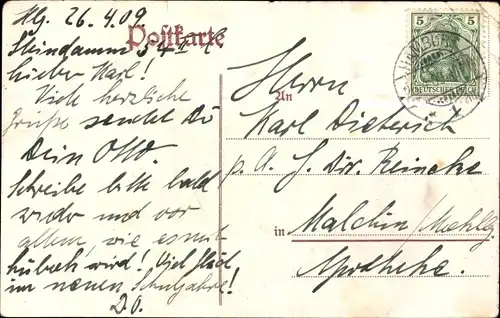 Hg. 26.4.09
Postkarte
Steindamm 54 II
Lieber Karl!
Viele herzliche
Grüße sendet Dir
Dein Otto.
Schreibe bitte bald
wieder und vor
allem, wie es mit
hübsch wird! Viel Glück
im neuen Schuljahre!
D.O.
5 5
DEUTSCHES REICH
HAMBURG
An
Herrn
Karl Dieterich
p. A. H. Dir. Reincke
in Malchin/Mecklbg
Apotheke.